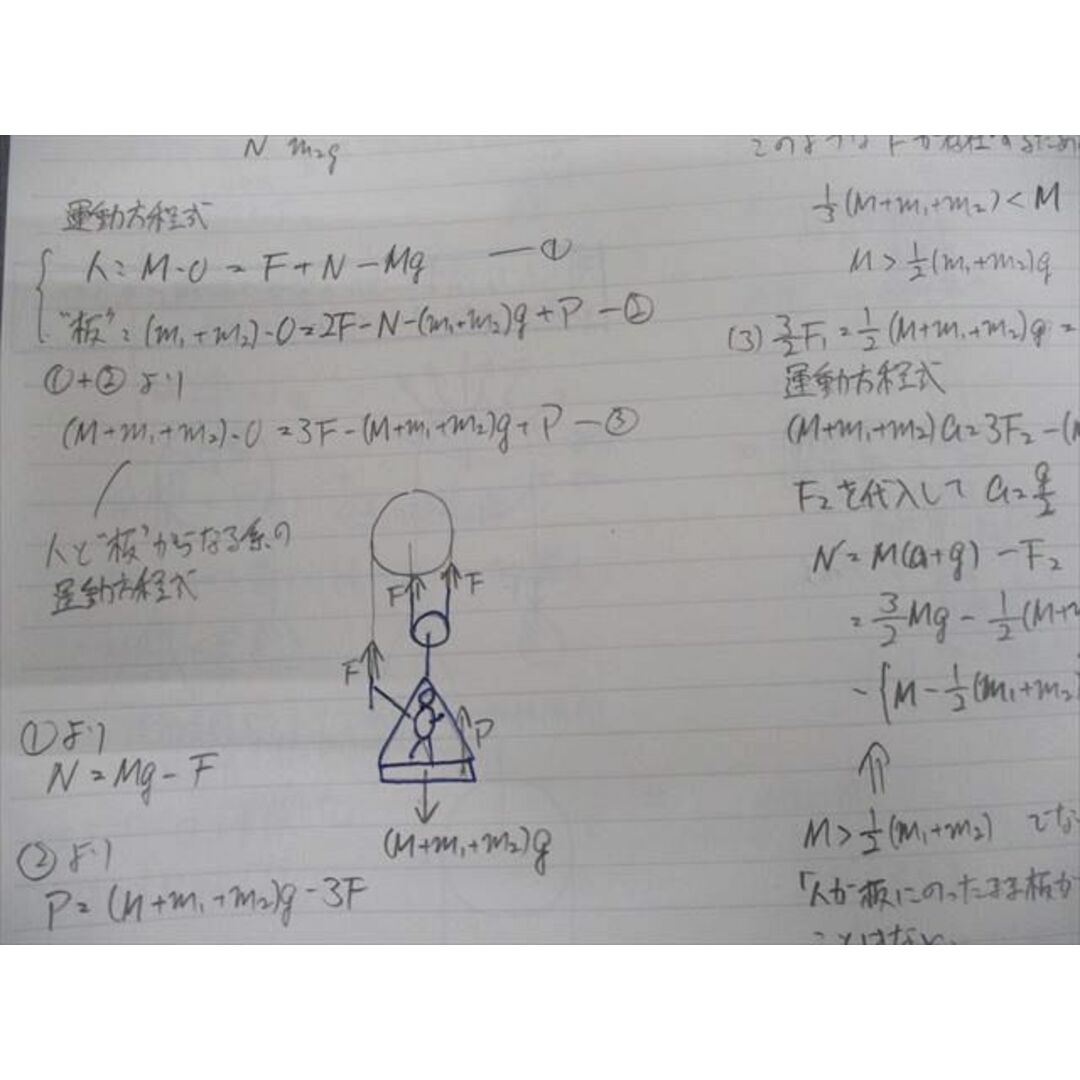 N m₂g
運動方程式
人:M・0 = F + N − Mg ー①
"板":(m₁+m₂)・0 = 2F − N − (m₁+m₂)g + P ー②
①+②より
(M+m₁+m₂)・0 = 3F − (M+m₁+m₂)g + P ー③
人と"板"からなる系の
運動方程式
F
F
F
P
(M+m₁+m₂)g
①より
N = Mg − F
②より
P = (M+m₁+m₂)g − 3F
このような F が存在するため
1/3(M+m₁+m₂) < M
M > 1/2(m₁+m₂)g
(3) 3/2F₁ = 1/2(M+m₁+m₂)g =
運動方程式
(M+m₁+m₂)a = 3F₂ − (M
F₂を代入して a = g/2
N = M(a+g) − F₂
= 3/2Mg − 1/2(M+m
− {M − 1/2(m₁+m₂)
⇑
M > 1/2(m₁+m₂) でな
「人が板にのったまま板が
ことはない.